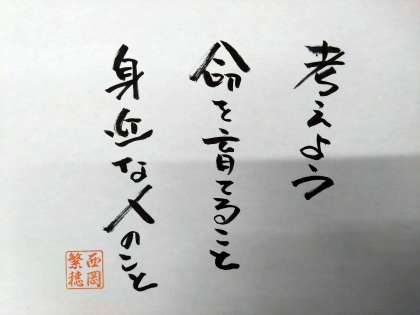 考えよう
命を育てること
身近な人のこと
西岡
繁穂